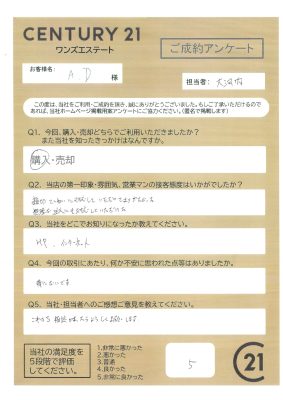 CENTURY 21
ワンズエステート
ご成約アンケート
お客様名: A D 様
担当者:
この度は、当社をご利用・ご成約を頂き、誠にありがとうございました。もしご了承いただけるので
あれば、当社ホームページ掲載用紙アンケートにご協力ください。(匿名で掲載します)
Q1、今回、購入・売却どちらでご利用いただきましたか?
また当社を知ったきっかけはなんですか。
購入・売却
Q2、当店の第一印象・雰囲気、営業マンの接客態度はいかがでしたか?
Q3、当社をどこでお知りになったか教えてください。
HP、インターネット
Q4、今回の取引にあたり、何か不安に思われた点等はありましたか。
特にないです
Q5、当社・担当者へのご感想ご意見を教えてください。
当社の満足度を
5段階で評価
してください。
1.非常に悪かった
2.悪かった
3.普通
4.良かった
5.非常に良かった
5
C21